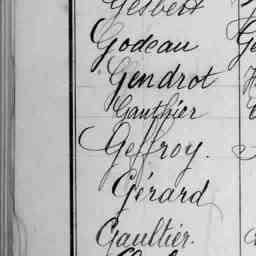 Gesbert
Godeau
Gendrot
Gauthier
Geffroy.
Gérard
Gaultier.